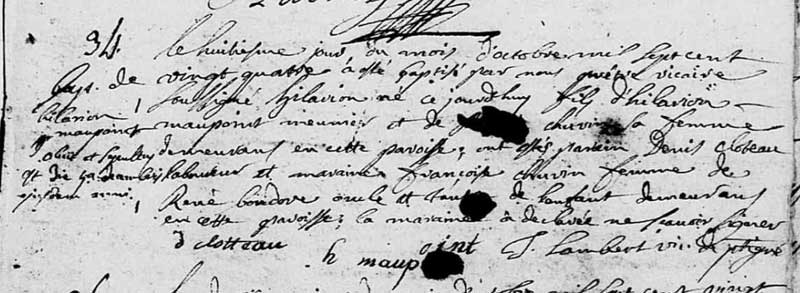 34.
le huitiesme jour du mois d'octobre mil sept cent
bap. de vingt quatre a esté baptisé par nous prêtre vicaire
hilarion soussigné hilarion né ce jourdhuy fils d'hilarion
maupoint maupoint meunier et de chuvin sa femme
obiit et sepultus demeurans en cette paroisse; ont estés parain Denis cloteau
est die laboureur et maraine françoise chuvin femme de
ejusdem anni René oncle et tante de l'enfant demeurans
en cette paroisse; la maraine a déclarée ne scavoir signer
d clotteau h maupoint J. Lambert vic.